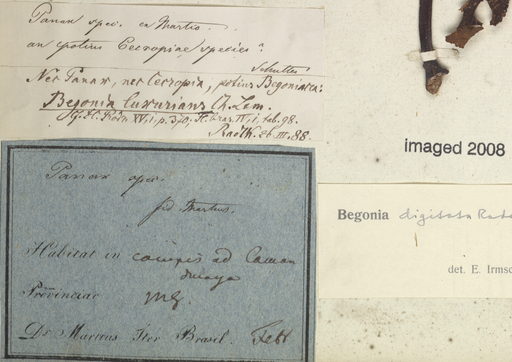 Panax spec. ex Martio.
an potius Cecropiae species?
Schultes
Nec Panax, nec Cecropia, potius Begoniacea:
Begonia luxurians Ch. Lem.
i, p. 370, Fl. bras. IV, i, tab. 98.
Radlk. 26. III. 88.
Panax spec.
fid. Martius.
Habitat in campis ad Caman
ducaya
Provinciae MG.
Dr. Martius Iter Brasil. Febr
imaged 2008
Begonia digitata Radd
1
det. E. Irmsc